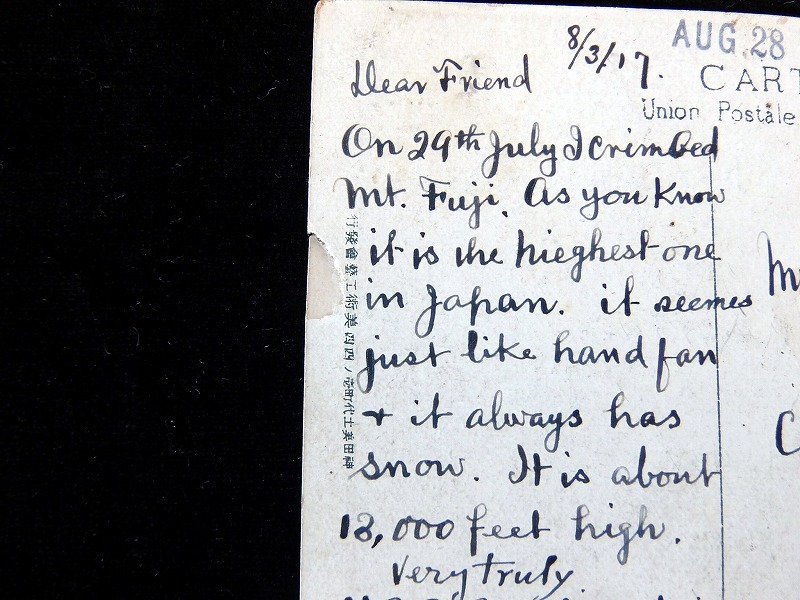 AUG 28
8/3/17.
CART
Union Postale
Dear Friend
On 29th July I crimbed
Mt. Fuji. As you know
it is the hieghest one
in Japan. it seemes
just like hand fan
+ it always has
snow. It is about
12,000 feet high.
Very truly
神田美土代町
美術工藝會發行